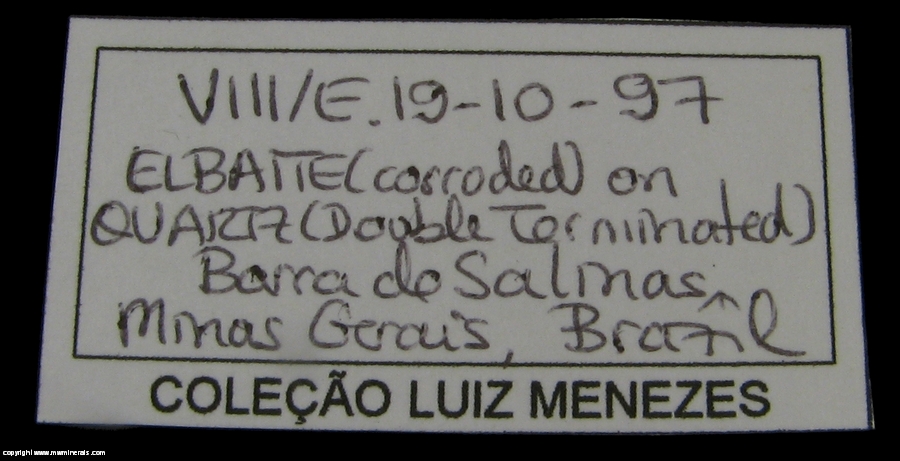 VIII/E.19-10-97
ELBAITE (corroded) on
QUARTZ (Double Terminated)
Barra de Salinas,
Minas Gerais, Brazîl
COLEÇÃO LUIZ MENEZES
copyright www.mwminerals.com